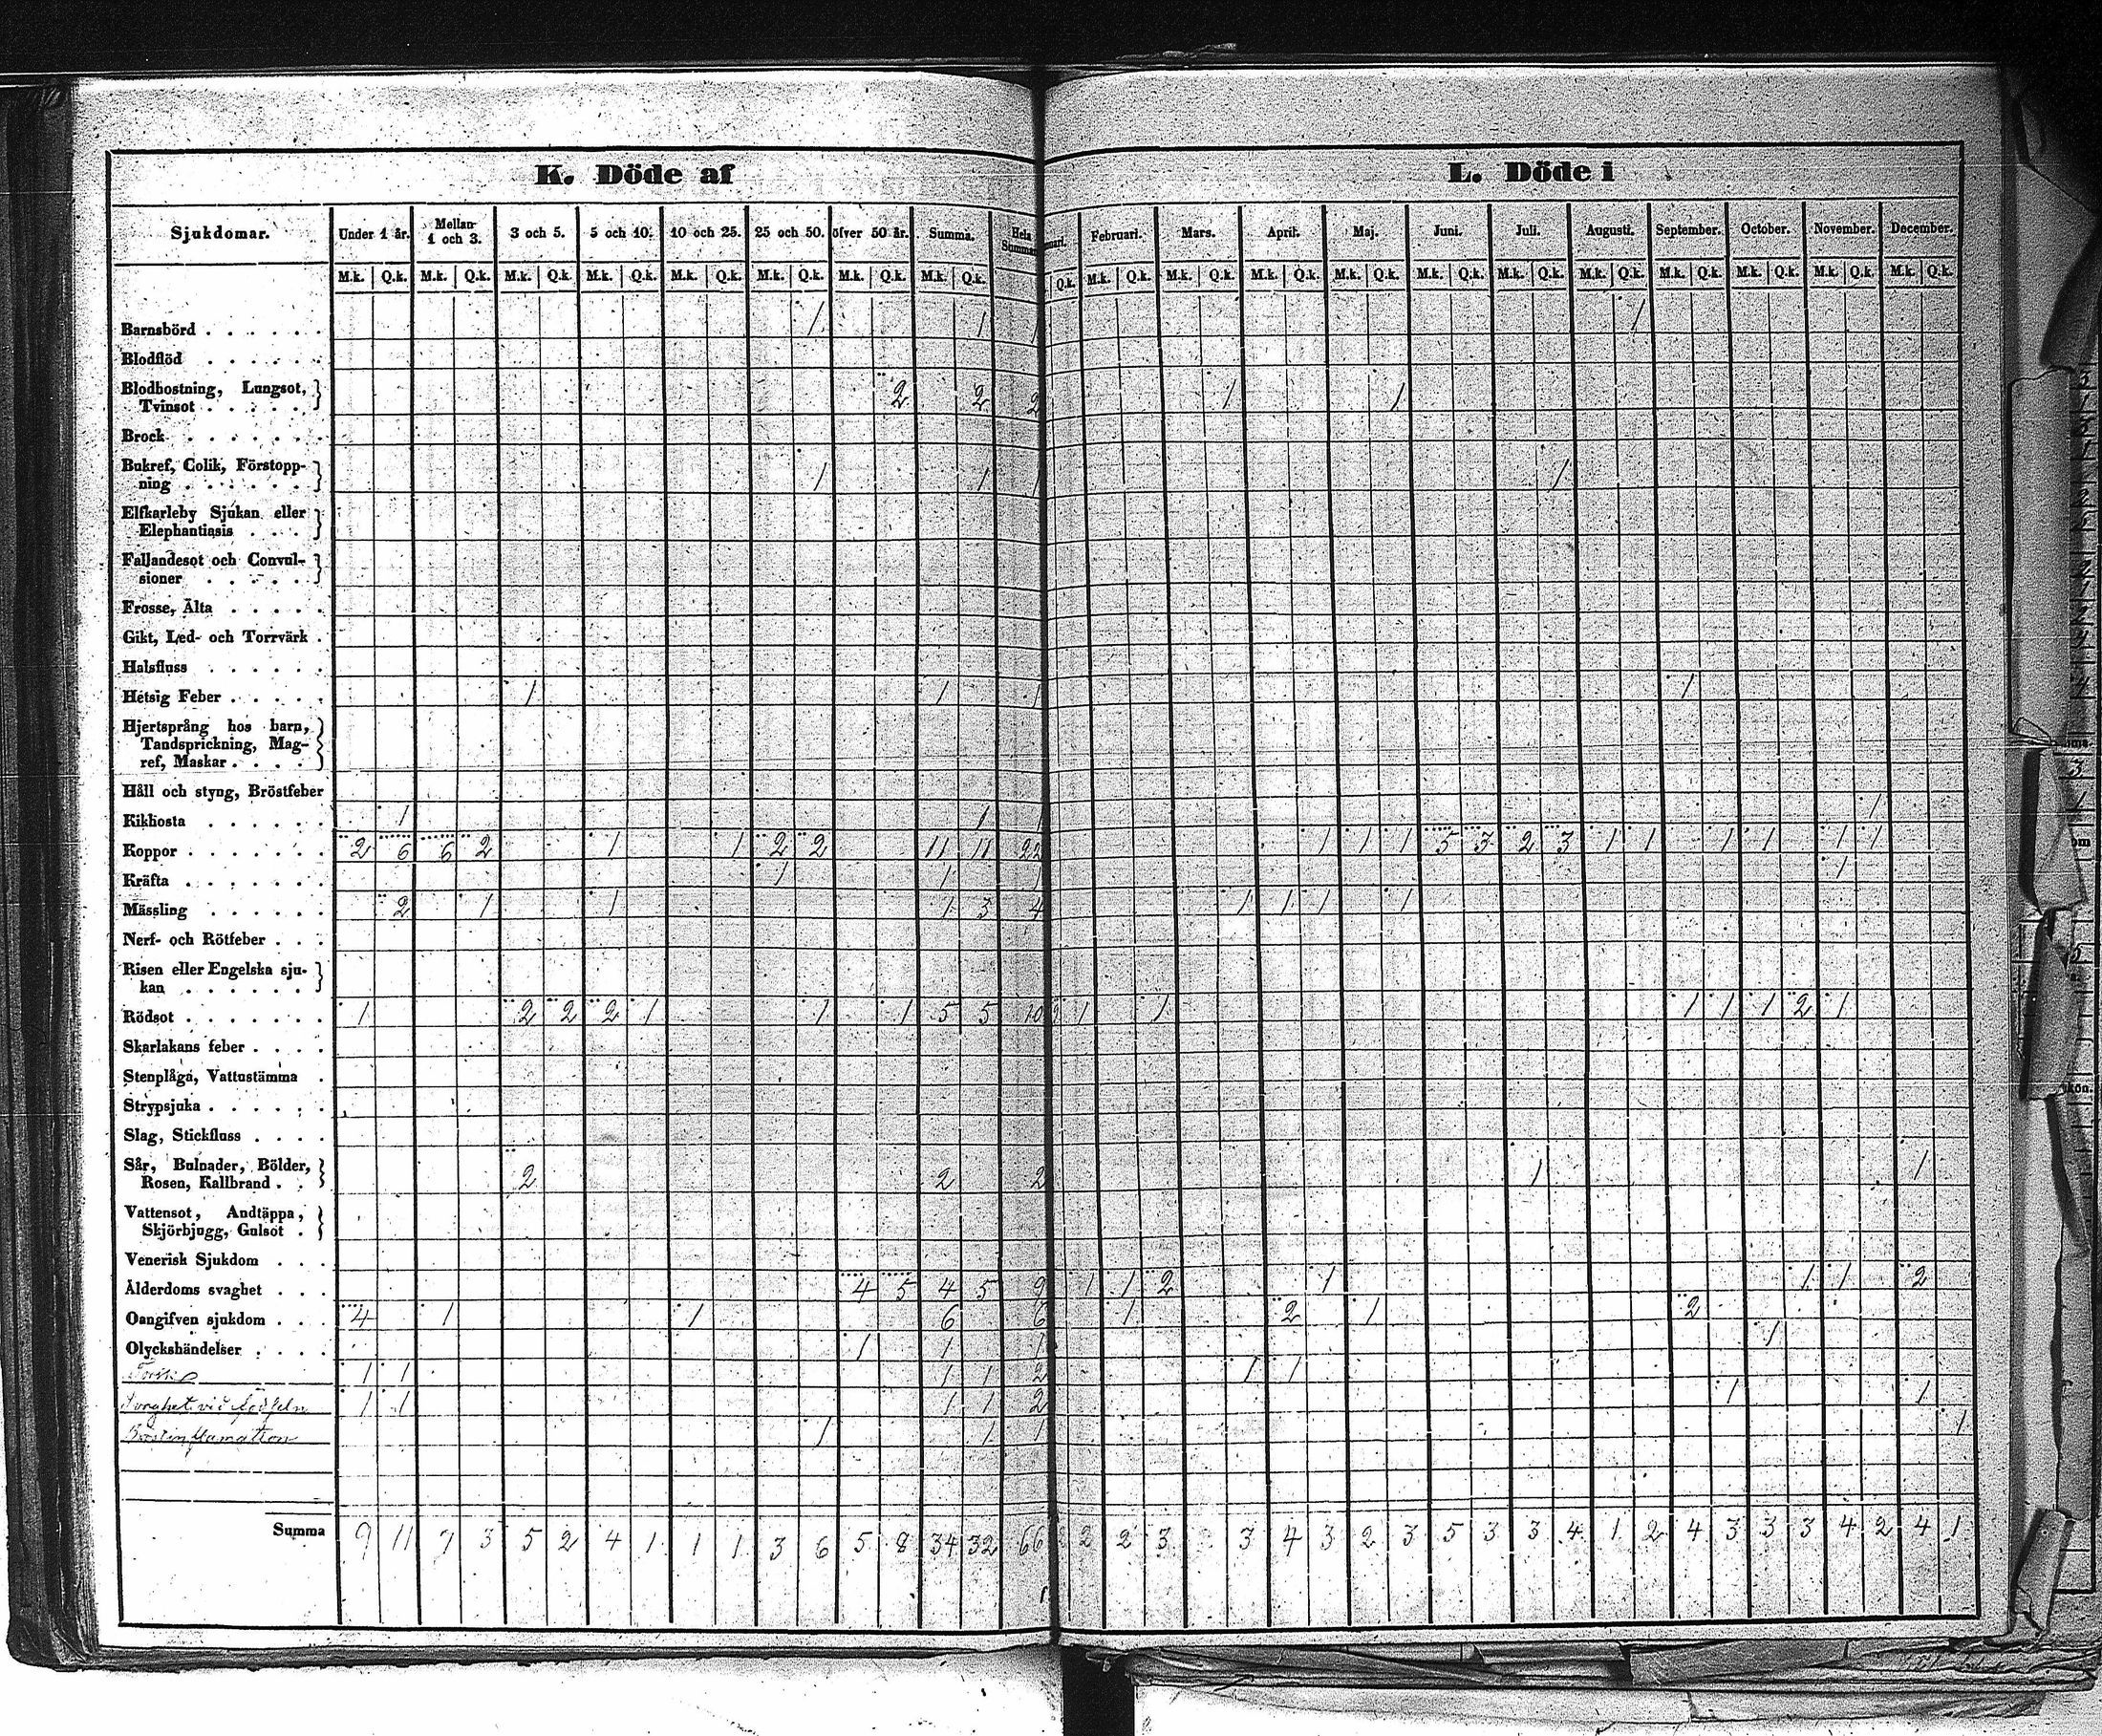 K. Döde af
L. Döde i
Sjukdomar. Under 1 år. Mellan 1 och 3. 3 och 5. 5 och 10. 10 och 25. 25 och 50. öfver 50 år. Summa. Hela Summan uari. Februari. Mars. April. Maj. Juni. Juli. Augusti. September. October. November. December.
M.k. Q.k. M.k. Q.k. M.k. Q.k. M.k. Q.k. M.k. Q.k. M.k. Q.k. M.k. Q.k. M.k. Q.k. Q.k. M.k. Q.k. M.k. Q.k. M.k. Q.k. M.k. Q.k. M.k. Q.k. M.k. Q.k. M.k. Q.k. M.k. Q.k. M.k. Q.k. M.k. Q.k. M.k. Q.k.
Barnsbörd . . . . . . 1 1 1 1
Blodflöd . . . . . .
Blodhostning, Lungsot,
Tvinsot . . . . . 2 2 2 1 1
Brock . . . . . . .
Bukref, Colik, Förstopp-
ning . . . . . . 1 1 1 1
Elfkarleby Sjukan eller
Elephantiasis . . .
Fallandesot och Convul-
sioner . . . . .
Frosse, Älta . . . . .
Gikt, Led- och Torrvärk .
Halsfluss . . . . . .
Hetsig Feber . . . . . 1 1 1 1
Hjertsprång hos barn,
Tandsprickning, Mag-
ref, Maskar . . . .
Håll och styng, Bröstfeber
Kikhosta . . . . . . 1 1 1 1
Koppor . . . . . . . 2 6 6 2 1 1 2 2 11 11 22 1 1 1 5 3 2 3 1 1 1 1 1 1
Kräfta . . . . . . . 1 1 1 1
Mässling . . . . . . 2 1 1 1 3 4 1 1 1 1
Nerf- och Rötfeber . . .
Risen eller Engelska sju-
kan . . . . . .
Rödsot . . . . . . . 1 2 2 2 1 1 1 5 5 10 2 1 1 1 1 1 2 1
Skarlakans feber . . . .
Stenplåga, Vattustämma .
Strypsjuka . . . . . .
Slag, Stickfluss . . . .
Sår, Bulnader, Bölder,
Rosen, Kallbrand . . 2 2 2 1 1
Vattensot, Andtäppa,
Skjörbjugg, Gulsot .
Venerisk Sjukdom . . .
Ålderdoms svaghet . . . 4 5 4 5 9 1 1 2 1 1 1 2
Oangifven sjukdom . . . 4 1 1 6 6 1 2 1 2
Olyckshändelser . . . . 1 1 1 1
1 1 1 1 2 1 1
Svaghet vid födseln 1 1 1 1 2 1 1
Bröstinflamation 1 1 1 1
Summa 9 11 7 3 5 2 4 1 1 1 3 6 5 8 34 32 66 2 2 3 3 4 3 2 3 5 3 3 4 1 2 4 3 3 3 4 2 4 1